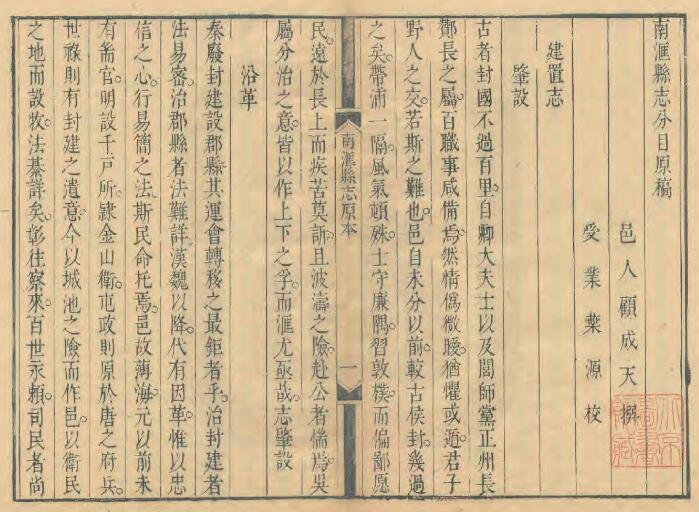 南滙縣志分目原稿
邑人顧成天撰
受業葉源校
建置志
肇設
古者封國不過百里自卿大夫士以及閭師黨正州長
鄼長之屬百職事咸備焉然情僞微曖猶懼或遁君子
野人之交若斯之難也邑自未分以前較古侯封幾過
之矣帶浦一隔風氣頓殊士守廉隅習敦樸而偏鄙愿
民遠於長上而疾苦莫訴且波濤之險赴公者惴焉吳
屬分治之意皆以作上下之孚而滙尤亟哉志肇設
沿革
秦廢封建設郡縣其運會轉移之最鉅者乎治封建者
法易密治郡縣者法難詳漢魏以降代有因革惟以忠
信之心行易簡之法斯民命托焉邑故薄海元以前未
有耑官明設千戸所隸金山衞屯政則原於唐之府兵
世祿則有封建之遺意今以城池之險而作邑以衞民
之地而設牧法綦詳矣彰往察來百世永賴司民者尚
南滙縣志原本
一
北京圖書館藏